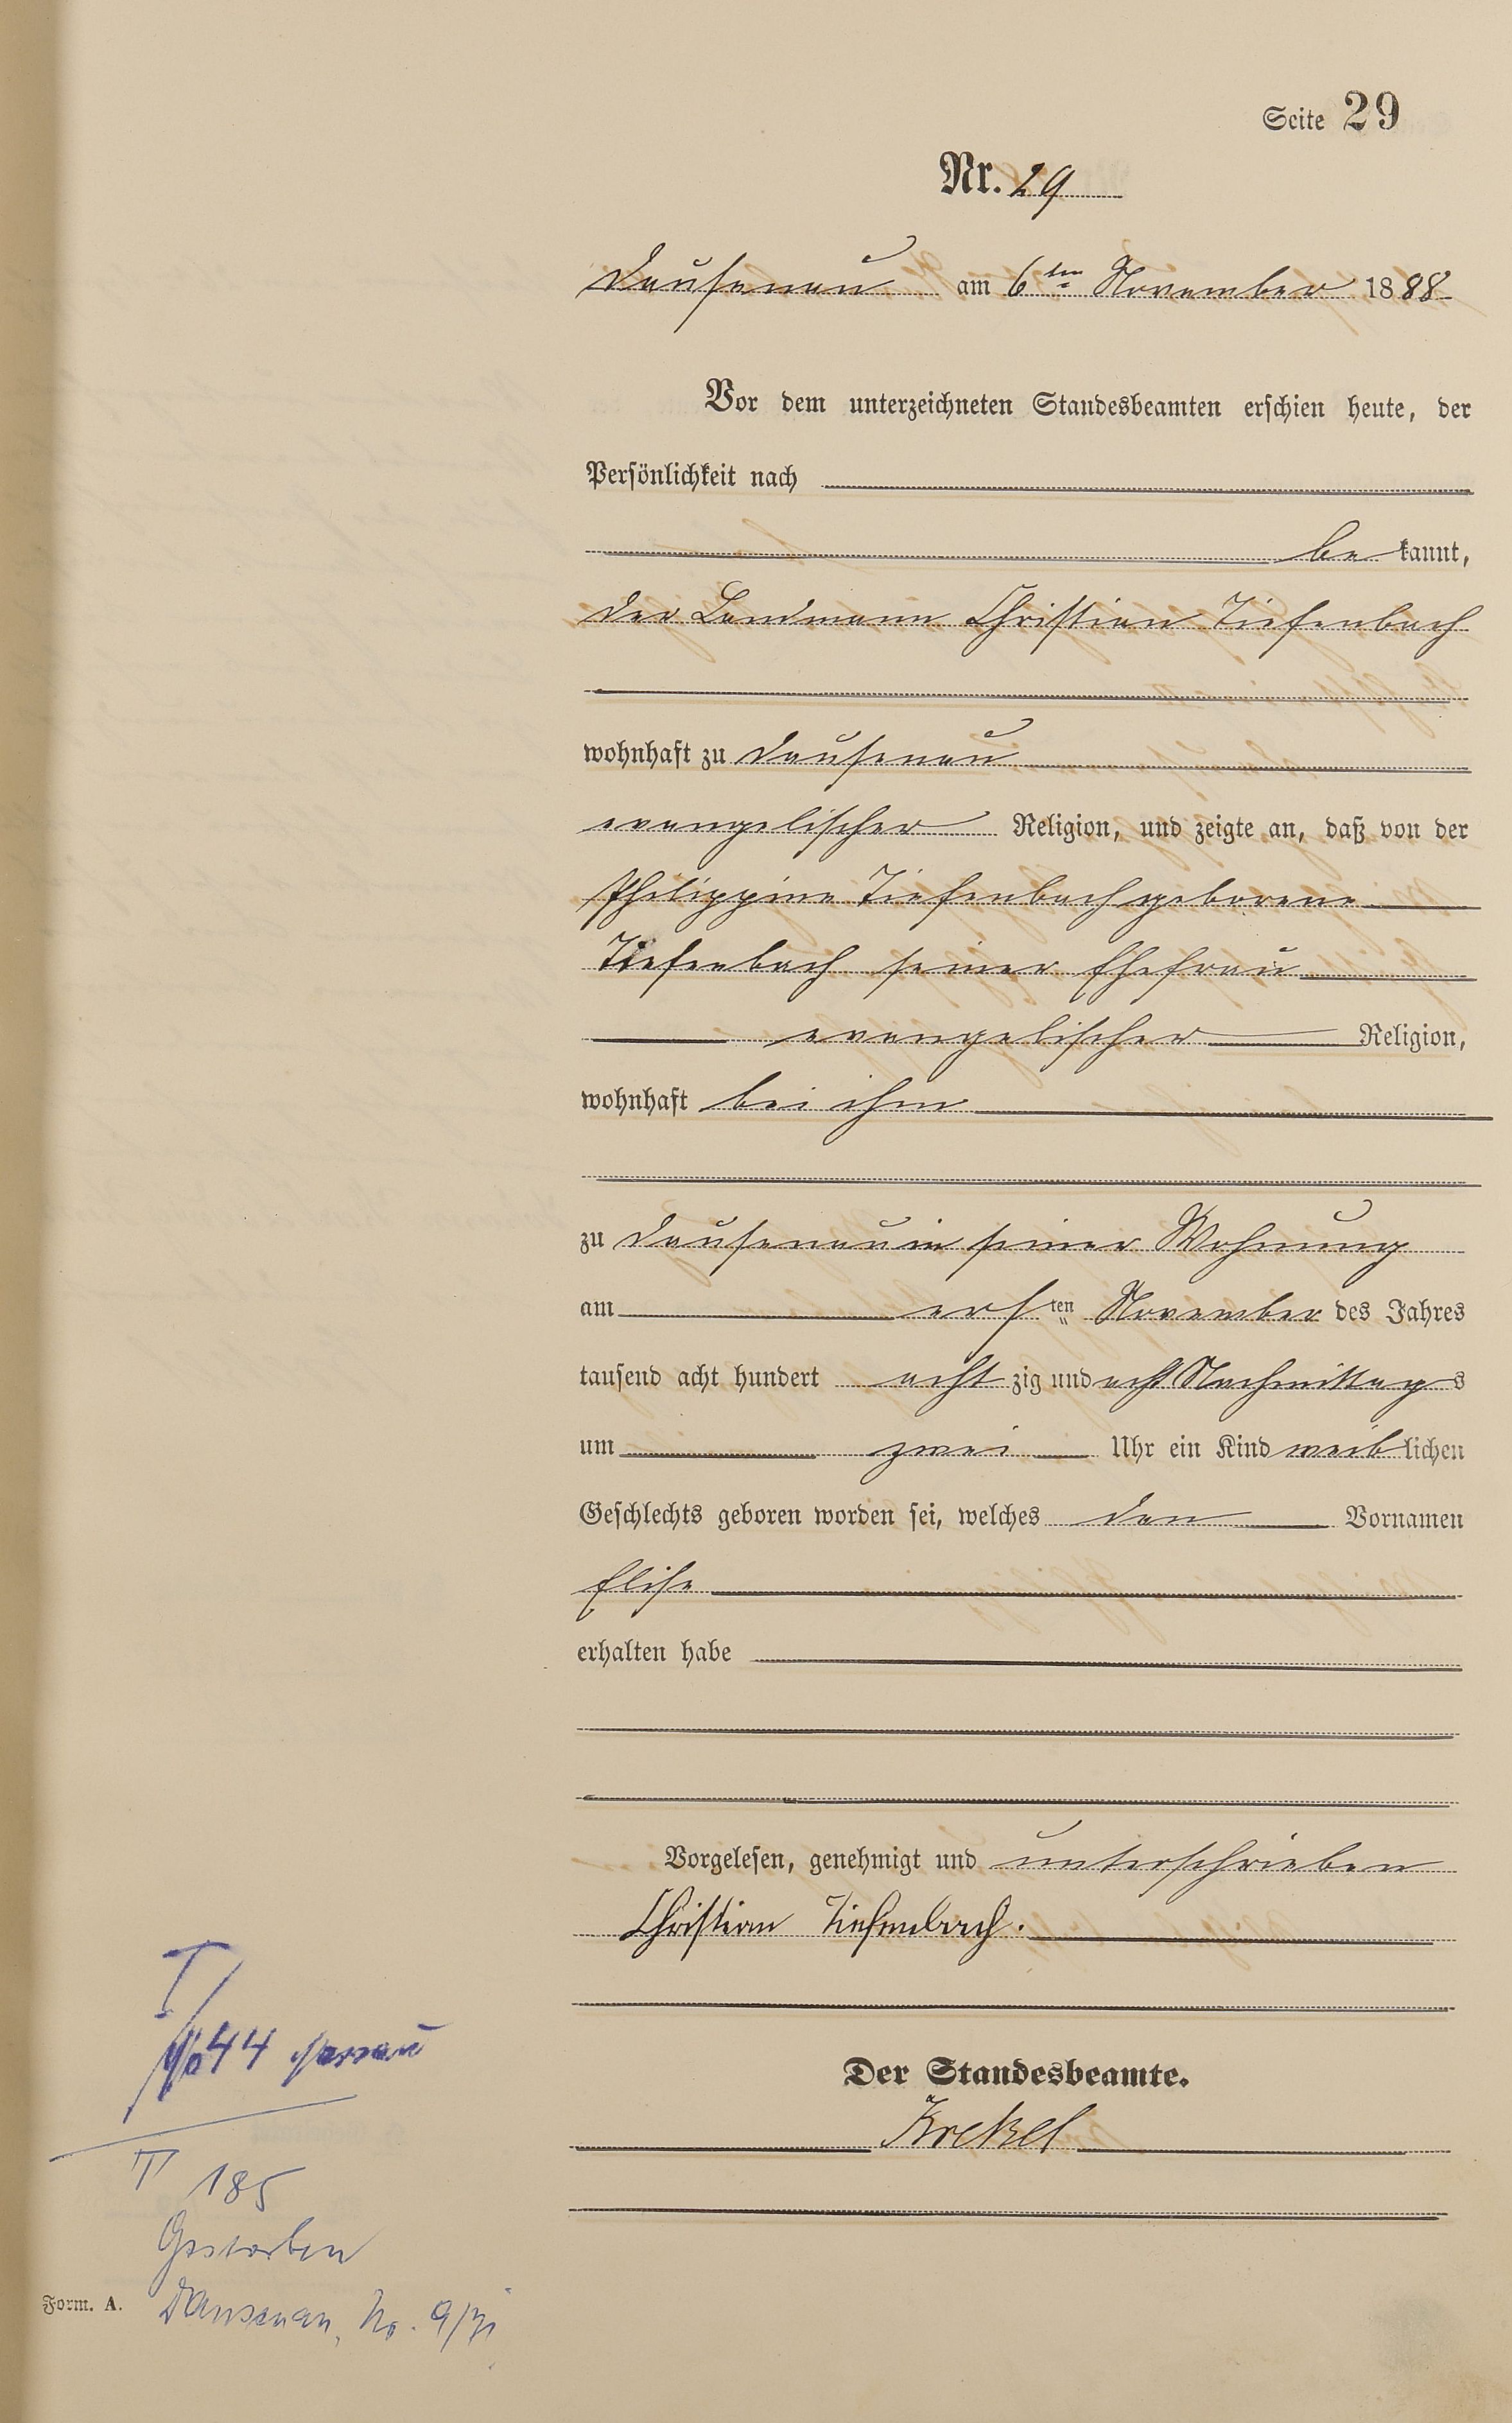 Seite 29
Nr. 29
Dausenau am 6ten November 1888
Vor dem unterzeichneten Standesbeamten erschien heute, der
Persönlichkeit nach
be kannt,
der Landmann Christian Tiefenbach
wohnhaft zu Dausenau
evangelischer Religion, und zeigte an, daß von der
Philippine Tiefenbach geborene
Tiefenbach seiner Ehefrau
evangelischer Religion,
wohnhaft bei ihm
zu Dausenau in seiner Wohnung
am ersten November des Jahres
tausend acht hundert acht zig und acht Nachmittags
um zwei Uhr ein Kind weiblichen
Geschlechts geboren worden sei, welches den Vornamen
Elise
erhalten habe
Vorgelesen, genehmigt und unterschrieben
Christian Tiefenbach.
Der Standesbeamte.
Krekel
T
44 Nassau
T 185
Gestorben
Dausenau, No. 9/71
Form. A.